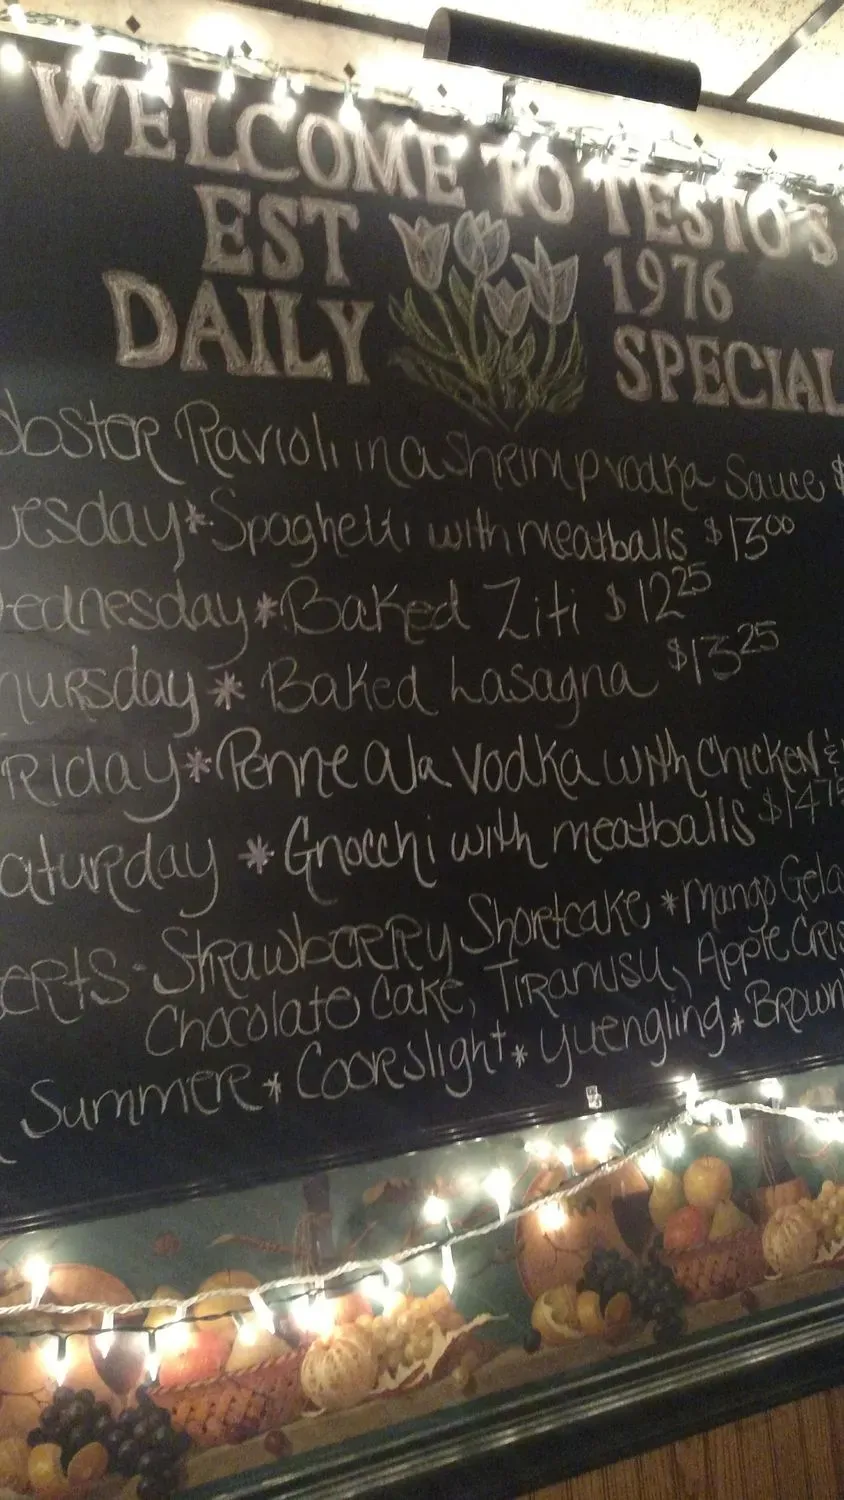 WELCOME TO TESTO'S
EST 1976
DAILY SPECIAL
obster Ravioli in a shrimp vodka Sauce $
uesday * Spaghetti with meatballs $13.00
ednesday * Baked Ziti $12.25
hursday * Baked Lasagna $13.25
riday * Penne Ala Vodka with Chicken &
aturday * Gnocchi with meatballs $14.75
erts - Strawberry Shortcake * Mango Gela
Chocolate Cake, Tiramisu, Apple Cris
Summer * Coorslight * Yuengling * Brown